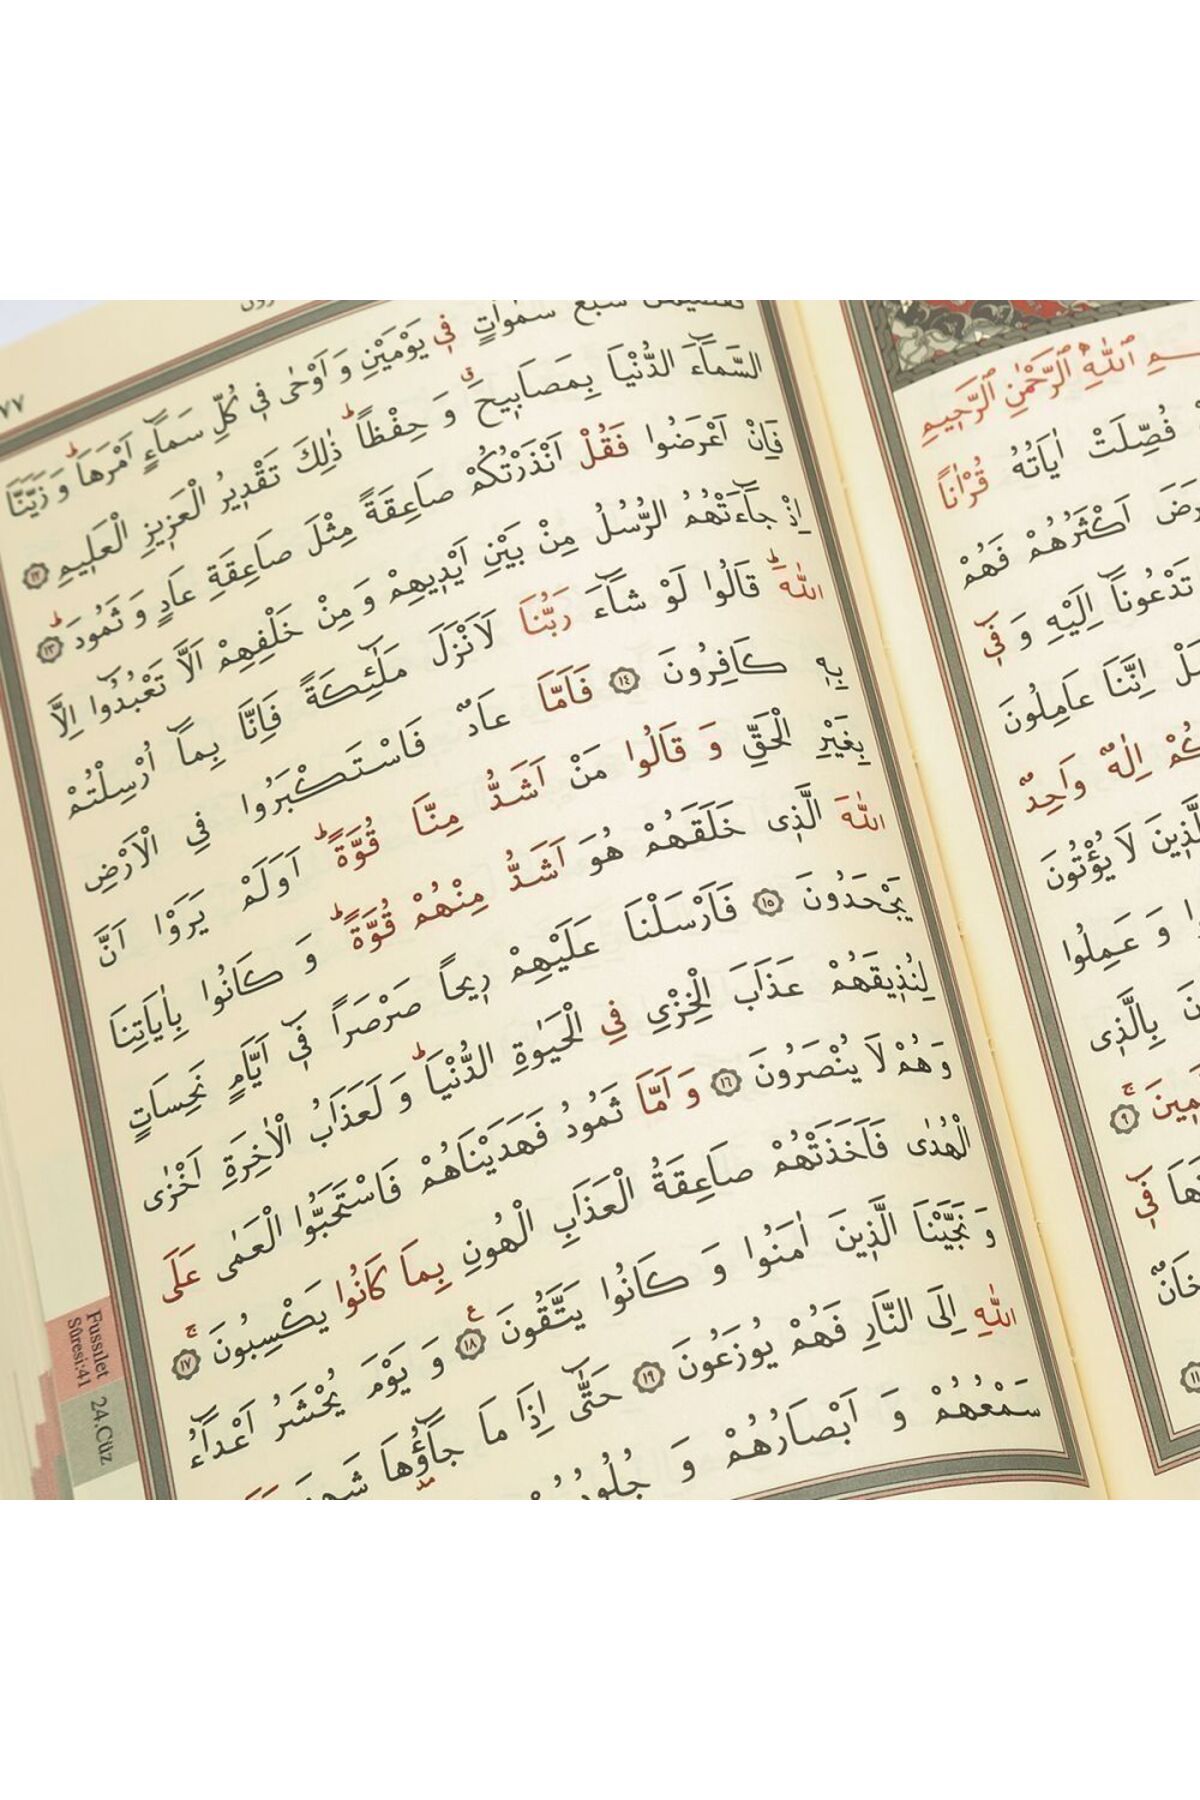 بِسْمِ اللّٰهِ الرَّحْمٰنِ الرَّحٖيمِ
فُصِّلَتْ اٰيَاتُهُ قُرْاٰناً
اَكْثَرُهُمْ فَهُمْ
تَدْعُونَٓا اِلَيْهِ وَ فٖٓي
اِنَّنَا عَامِلُونَ
اِلٰهٌ وَاحِدٌ
لَا يُؤْتُونَ
وَ عَمِلُوا
بِالَّذٖى
٩
فٖٓي
٧٧
سَبْعَ سَمٰوَاتٍ فٖي يَوْمَيْنِ وَ اَوْحٰى فٖي كُلِّ سَمَٓاءٍ اَمْرَهَاؕ وَ زَيَّنَّا
السَّمَٓاءَ الدُّنْيَا بِمَصَابٖيحَࣗ وَ حِفْظاًؕ ذٰلِكَ تَقْدٖيرُ الْعَزٖيزِ الْعَلٖيمِ ١٢
فَاِنْ اَعْرَضُوا فَقُلْ اَنْذَرْتُكُمْ صَاعِقَةً مِثْلَ صَاعِقَةِ عَادٍ وَ ثَمُودَؕ ١٣
اِذْ جَٓاءَتْهُمُ الرُّسُلُ مِنْ بَيْنِ اَيْدٖيهِمْ وَ مِنْ خَلْفِهِمْ اَلَّا تَعْبُدُٓوا اِلَّا
اللّٰهَؕ قَالُوا لَوْ شَٓاءَ رَبُّنَا لَاَنْزَلَ مَلٰٓئِكَةً فَاِنَّا بِمَٓا اُرْسِلْتُمْ
بِهٖ كَافِرُونَ ١٤ فَاَمَّا عَادٌ فَاسْتَكْبَرُوا فِي الْاَرْضِ
بِغَيْرِ الْحَقِّ وَ قَالُوا مَنْ اَشَدُّ مِنَّا قُوَّةًؕ اَوَلَمْ يَرَوْا اَنَّ
اللّٰهَ الَّذٖى خَلَقَهُمْ هُوَ اَشَدُّ مِنْهُمْ قُوَّةًؕ وَ كَانُوا بِاٰيَاتِنَا
يَجْحَدُونَ ١٥ فَاَرْسَلْنَا عَلَيْهِمْ رٖيحاً صَرْصَراً فٖٓي اَيَّامٍ نَحِسَاتٍ
لِنُذٖيقَهُمْ عَذَابَ الْخِزْيِ فِي الْحَيٰوةِ الدُّنْيَاؕ وَ لَعَذَابُ الْاٰخِرَةِ اَخْزٰى
وَ هُمْ لَا يُنْصَرُونَ ١٦ وَ اَمَّا ثَمُودُ فَهَدَيْنَاهُمْ فَاسْتَحَبُّوا الْعَمٰى عَلَى
الْهُدٰى فَاَخَذَتْهُمْ صَاعِقَةُ الْعَذَابِ الْهُونِ بِمَا كَانُوا يَكْسِبُونَۚ ١٧
وَ نَجَّيْنَا الَّذٖينَ اٰمَنُوا وَ كَانُوا يَتَّقُونَ ع ١٨ وَ يَوْمَ يُحْشَرُ اَعْدَٓاءُ
اللّٰهِ اِلَى النَّارِ فَهُمْ يُوزَعُونَ ١٩ حَتّٰٓى اِذَا مَا جَٓاؤُ۫هَا شَهِدَ
سَمْعُهُمْ وَ اَبْصَارُهُمْ وَ
Fussılet
Sûresi:41
24.Cüz